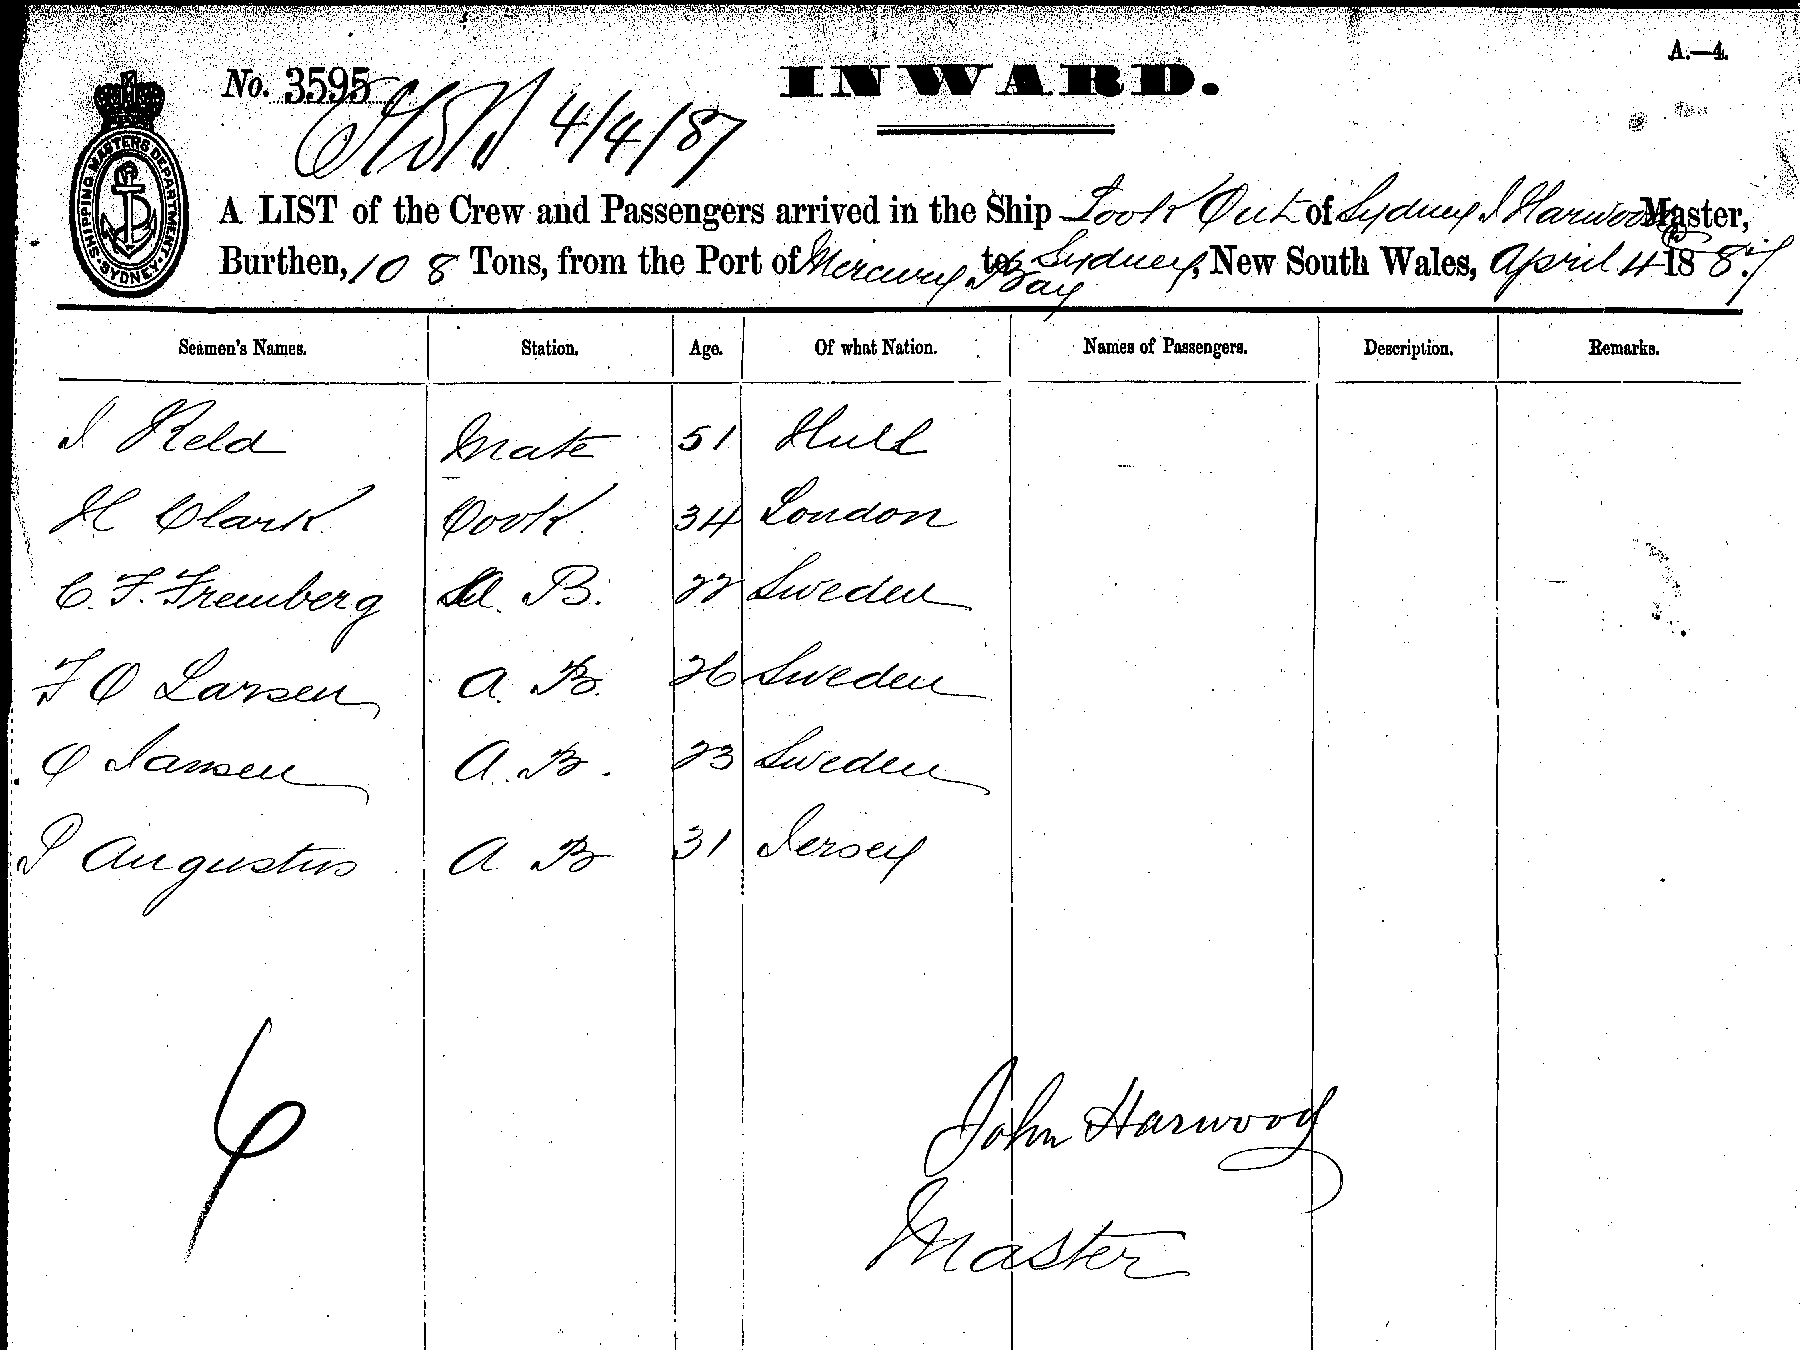 A.—4.
No. 3595
INWARD.
4/4/87
SHIPPING MASTERS DEPARTMENT
SYDNEY
A LIST of the Crew and Passengers arrived in the Ship Look Out of Sydney J Harwood Master,
Burthen, 108 Tons, from the Port of Mercury Bay to Sydney, New South Wales, April 4 1887
Seamen's Names. Station. Age. Of what Nation. Names of Passengers. Description. Remarks.
J. Reld Mate 51 Hull
H Clark Cook 34 London
C. F. Fremberg A. B. 22 Sweden
F O Larsen A. B. 26 Sweden
O Jansen A. B. 23 Sweden
J Augustus A B 31 Jersey
John Harwood
Master